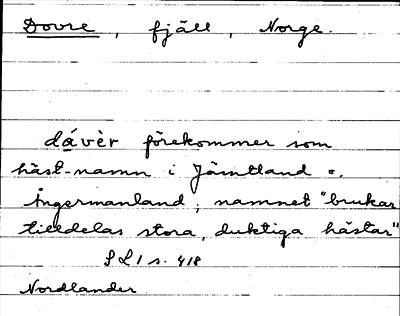 Dovre, fjäll, Norge.
dávèr förekommer som
häst-namn i Jämtland o.
Ångermanland; namnet "brukar
tilldelas stora, duktiga hästar"
SL 1 s. 418
Nordlander